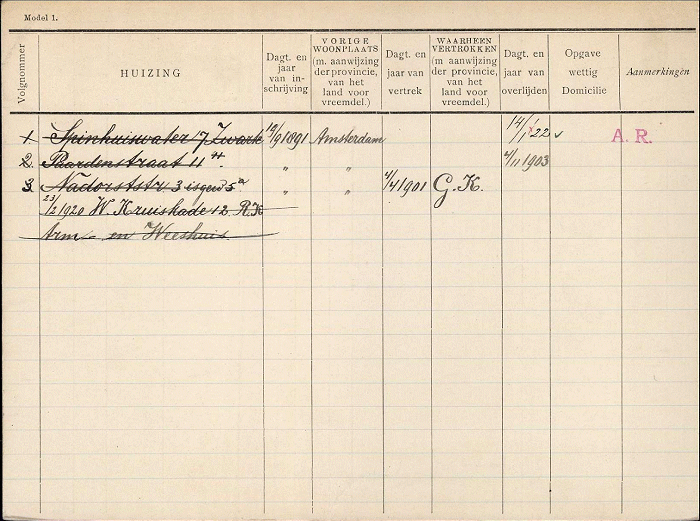 Model 1.
Volgnommer
HUIZING
Dagt. en jaar van in-schrijving
VORIGE WOONPLAATS (m. aanwijzing der provincie, van het land voor vreemdel.)
Dagt. en jaar van vertrek
WAARHEEN VERTROKKEN (m aanwijzing der provincie, van het land voor vreemdel.)
Dagt. en jaar van overlijden
Opgave wettig Domicilie
Aanmerkingen
1. Spinhuiswater 17 Zwart 19/9 1891 Amsterdam 14/1 22 v A. R.
2. Paardenstraat 11 " " 4/11 1903
3. Nadorststr 3 isgew 5a " " 4/4 1901 G. K.
23/2 1920 W. Kruiskade 12 R.K
Arm- en Weeshuis